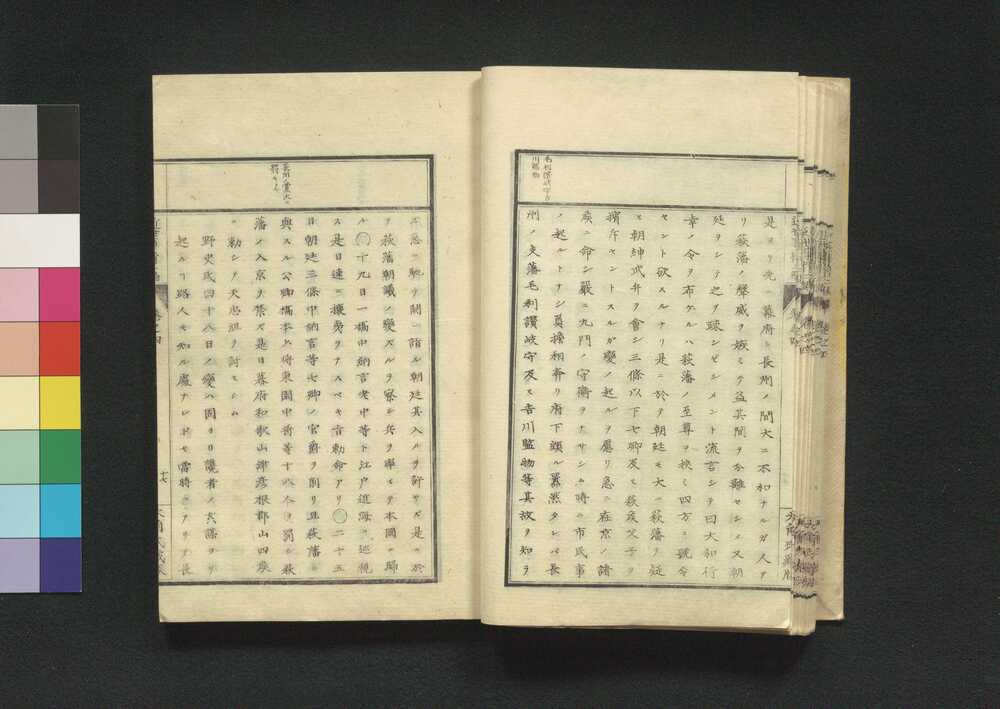 毛利讃岐守吉
川監物
是ヨリ先幕府ト長州ノ間大ニ不和ナルガ人ヲ
リ萩藩ノ聲威ヲ嫉ミテ益其間ヲ分離セシメ又朝
廷ヲシテ之ヲ疎ンゼシメント流言シテ曰大和行
幸ノ令ヲ布ケルハ萩藩ノ至尊ヲ挾ミ四方ニ號令
セント欲スルナリ是ニ於テ朝廷モ大ニ萩藩ヲ疑
ヒ朝紳武弁ヲ會シ三條以下七卿及ヒ萩矦父子ヲ
擯斥セントスルガ變ノ起ルヲ慮リ急ニ在京ノ諸
矦ニ命シ嚴ニ九門ノ守衛ヲナサシム時ニ市民事
ノ起ルトナシ負擔相奔リ府下頗ル囂然タシバ長
州ノ支藩毛利讃岐守及ヒ吉川監物等其故ヲ知ラ
ズ急ニ馳テ闕ニ詣ル朝廷其入ルヲ許サズ是ニ於
テ萩藩朝議ノ變ズルヲ察シ兵ヲ率ヒテ本國ニ歸
ル○十九日一橋中納言老中等ト江戸近海ヲ巡視
ス是日速ニ攘夷ヲナスベキ旨勅命アリ○二十五
日朝廷三條中納言等七卿ノ官爵ヲ削リ且萩藩ニ
與スル公卿橋本少將東園中將等十八人ヲ罰シ萩
藩ノ入京ヲ禁ズ是日幕府和歌山津彦根郡山四矦
ニ勅シテ天忠組ヲ討セシム
野史氏曰十八日ノ變ハ固ヨリ讒者ノ太謀ヨリ
起ルヿ路人モ知ル處ナレドモ當時ニアリテ長
十七